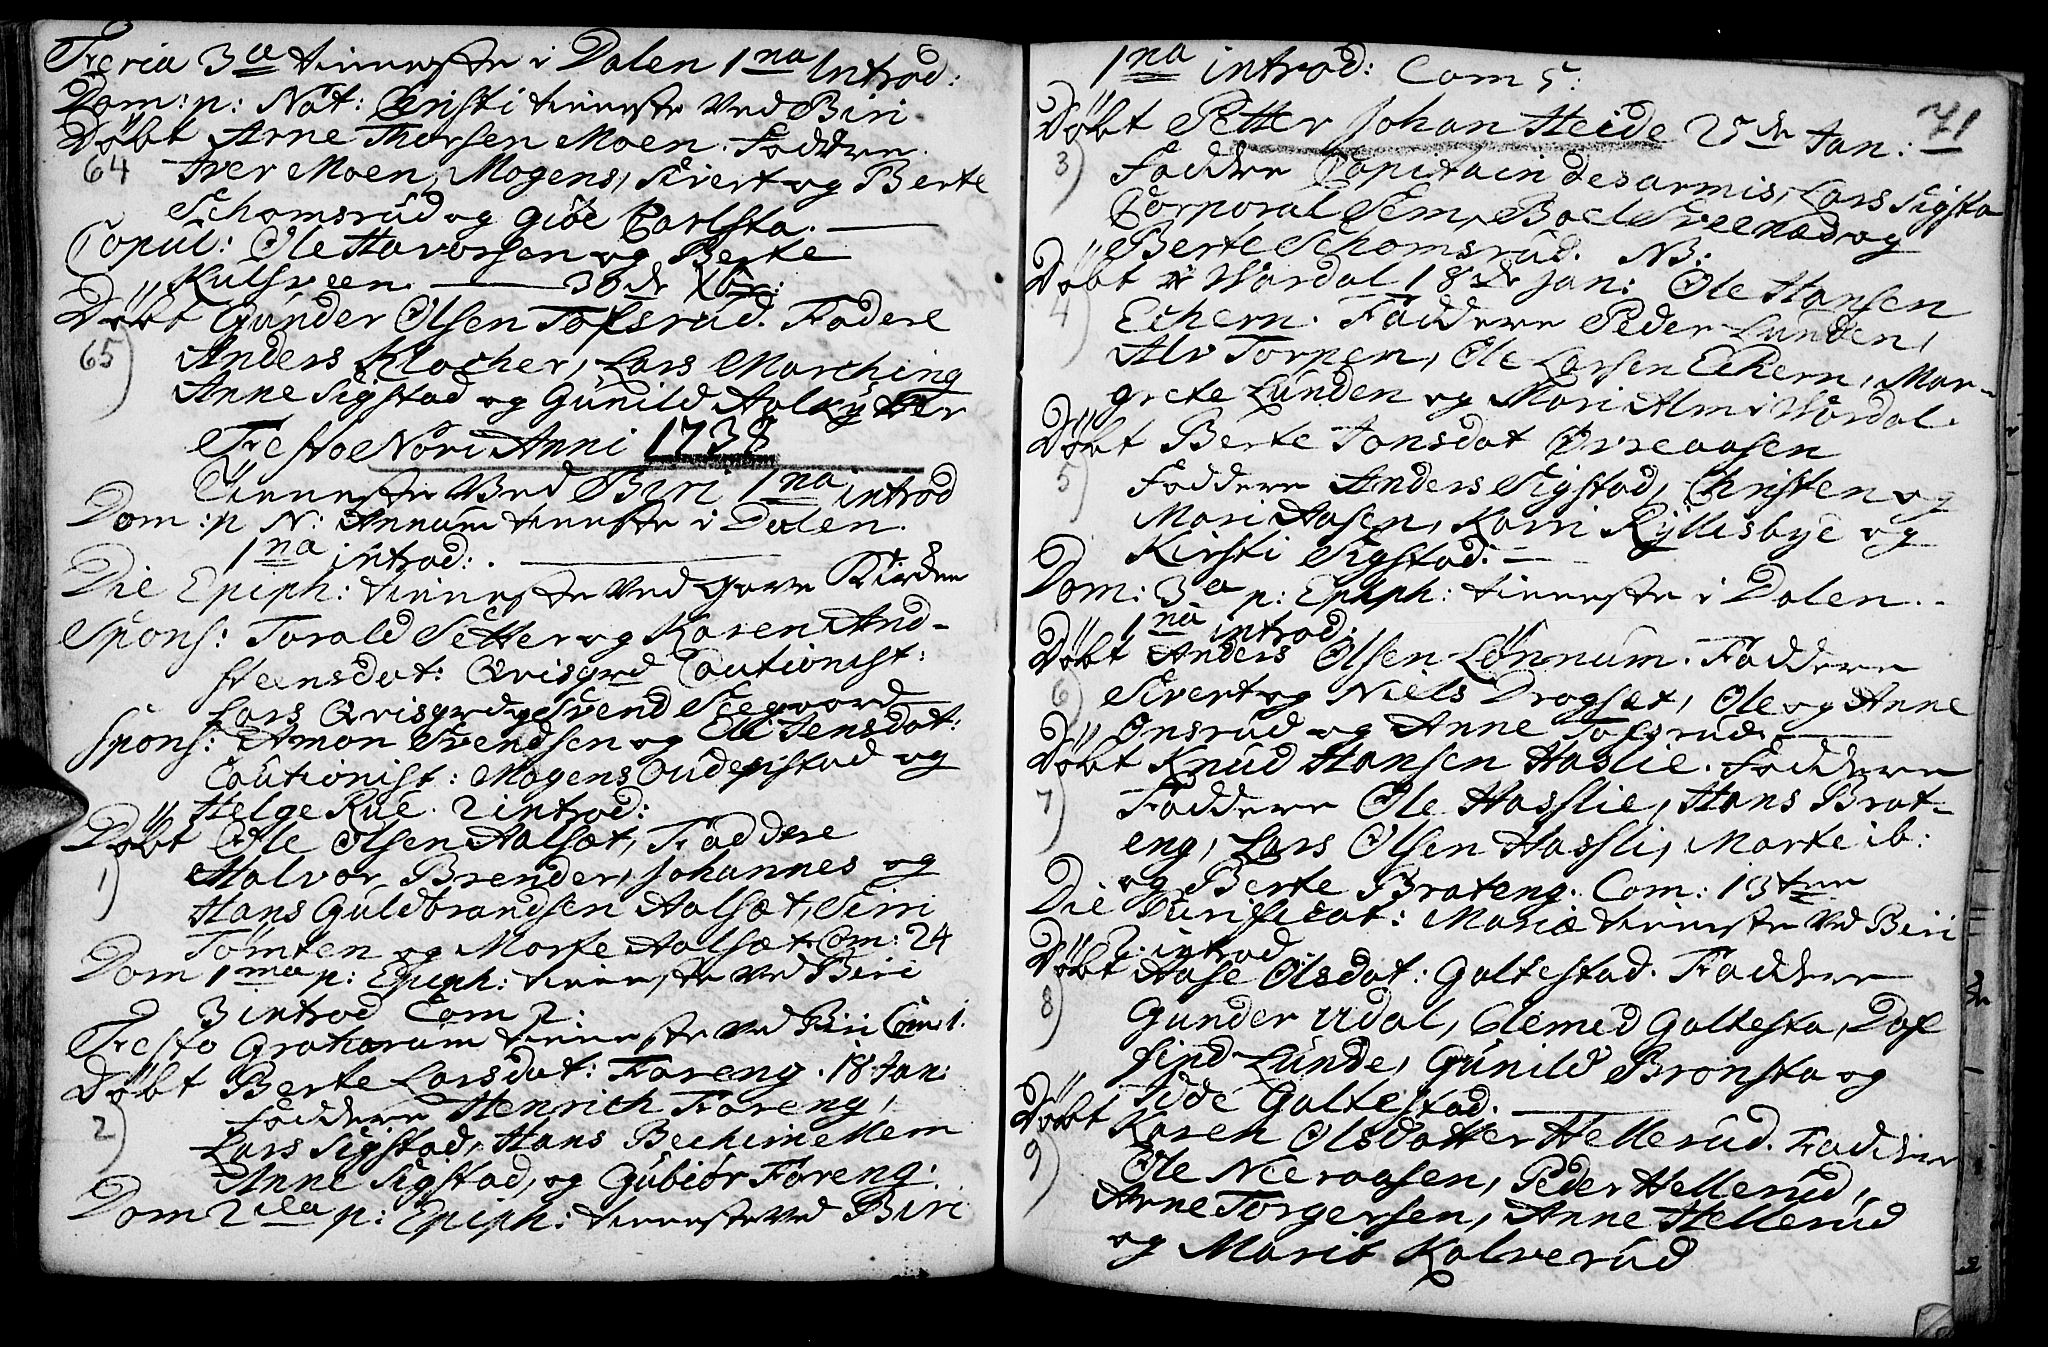 Feria 3a tienneste i Dalen 1na Introd:
Dom: p: Nat: Christi tienneste Ved Biri.
Døbt Arne Thorsen Moen. Faddere
64 Iver Moen, Mogens, Sivert og Berte
Schomsrud og Giøe Carlsta.
Copul: Ole Havorsen og Berte
Kulsveen. 30de Xbr:
Døbt Gunder Olsen Tofsrud. Fadere
65) Anders Klocher, Lars Morching
Anne Sigstad og Gunild
Festo Novi Anni 1738
Tienneste Ved Biri 1na introd
Dom: p N: Annum tienneste i Dalen.
1na introd:.
Die Epiph: tienneste Ved Kirchen
Spons: Torald Setter og Karen And-
steensdat: Qvisgrd Cautionist:
Lars Qvisgrd og Svend
Spons: Amon Svendsen og Eli Jensdat:
Cautionist: Mogens og
Helge Rue. 2 introd:
Døbt Ole Olsen Aalsæt, Faddere
1) Halvor Brender, Johannes og
Hans Guldbrandsen Aalsæt, Sirri
Tomten og Marte Aalsæt Com: 24
Dom 1ma p: Epiph: tienneste Ved Biri
3 introd Com 2:
Festo tienneste Ved Biri Com: 1.
Døbt Berte Larsdat: Foreng. 18 Jan:
2) Faddere Henrich Foreng,
Lars Sigstad, Hans
Anne Sigstad, og Gubiør Foreng.
Dom 2da p: Epiph: tienneste Ved Biri
71
1na introd: Com 5:
Døbt Petter Johan Heide 25de Jan:
3) Faddere Capitain des armis, Lars Sigsta
Corporal Sem, Boel og
Berte Schomsrud. NB.
Døbt i Wardal 18de Jan: Ole Hansen
4) Echern. Faddere Peder Lunden,
Alv Torpen, Ole Larsen Echern, Mar-
grete Lunden og Mari Alm i Wardal.
Døbt Berte Jonsdat
5) Faddere Anders Sigstad, Christen og
Mari Aasen, Karri Kyllesbye og
Kirsti Sigstad.
Dom: 3a p: Epiph: tienneste i Dalen.
1na introd.
Døbt Anders Olsen Lønnum. Faddere
6) Sivert og Niels Dragset, Ole og Anne
Onsrud og Anne Tofsrud.
Døbt Knud Hansen Haslie. Faddere
7) Faddere Ole Hasslie, Hans Brat-
eng, Lars Olsen Hassli, Marte ib:
og Berte Brateng. Com: 13ten
Die Purificat: Mariæ tienneste Ved Biri
2. introd
Døbt Aase Olsdat: Galtestad. Faddere
8) Gunder Udal, Galtesta, Dof
find Lunde, Gunild Bronsta og
Galtestad.
Døbt Karen Olsdatter Hellerud. Faddere
9) Ole Peder Hellerud,
Arne Torgersen, Anne Hellerud
og Marit Kalverud